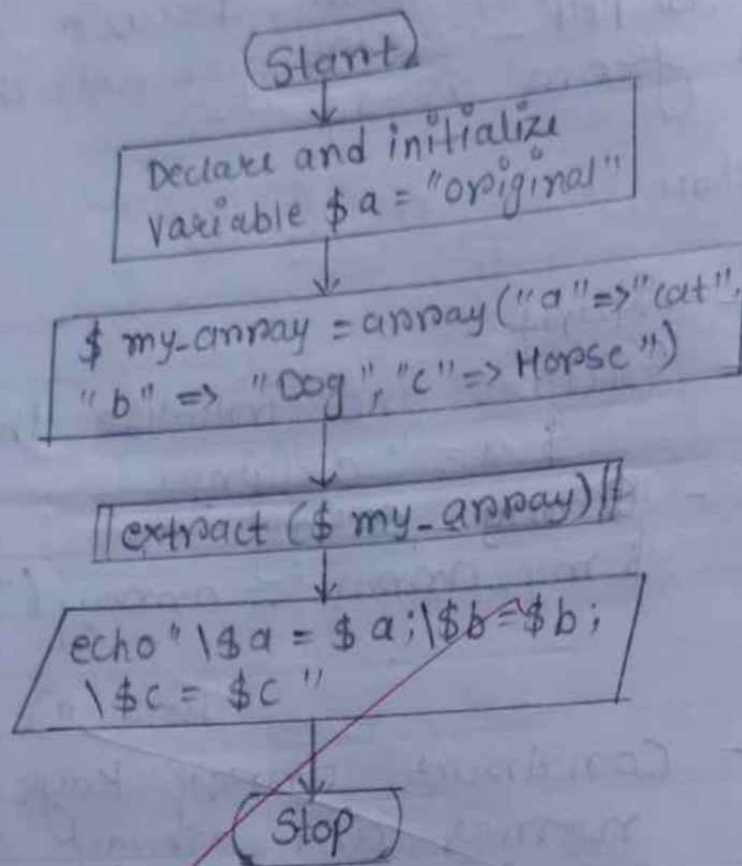 Start
Declare and initialize
variable $a = "original"
$ my_array = array ("a"=>"cat",
"b" => "Dog", "c"=> Horse")
extract ($ my_array)
echo" \$a = $a;\$b=$b;
\$c = $c "
Stop